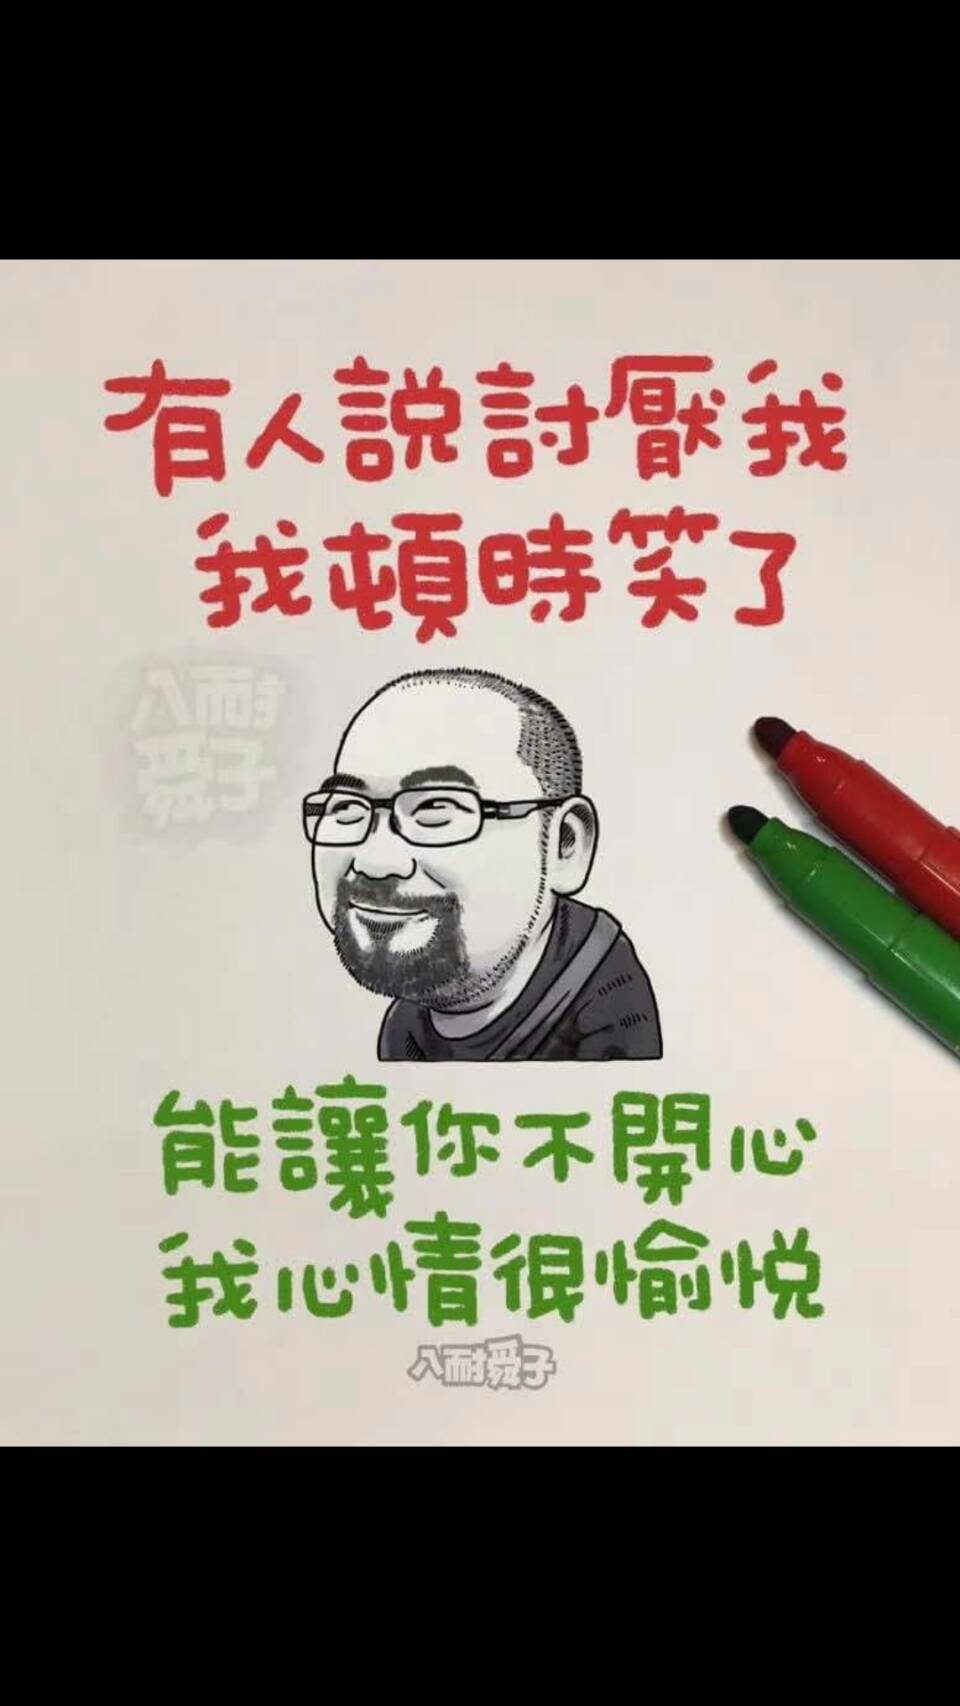 有人說討厭我
我頓時笑了
八耐
舜子
能讓你不開心
我心情很愉悅
八耐舜子